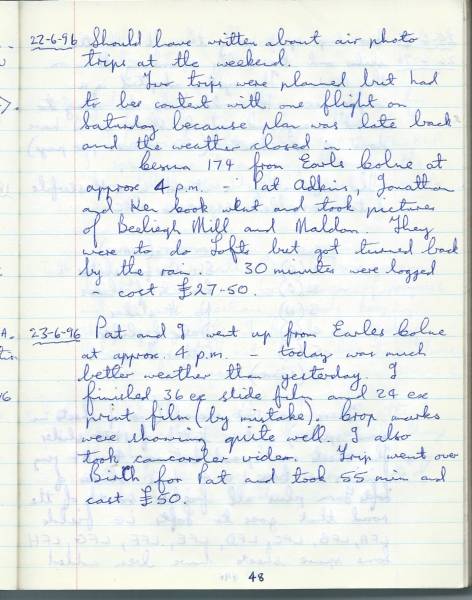 22-6-96 Should have written about air photo
trips at the weekend.
Two trips were planned but had
to be content with one flight on
Saturday because plan was late back
and the weather closed in.
Cessna 174 from Earls Colne at
approx 4 p.m. - Pat Adkins, Jonathan
and Ken Book went and took pictures
of Beeliegh Mill and Maldon. They
were to do Lofts but got turned back
by the rain. 30 minutes were logged
- cost £27-50.
23-6-96 Pat and I went up from Earles Colne
at approx. 4 p.m. - today was much
better weather than yesterday. I
finished 36 ex slide film and 24 ex
print film (by mistake). Crop marks
were showing quite well. I also
took camcorder video. Trip went over
Birch for Pat and took 55 min and
cost £50.
48